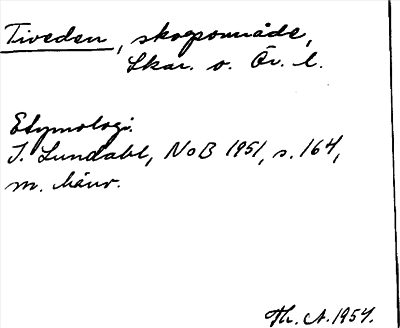 Tiveden, skogsområde,
Skar. o. Ör. l.
Etymologi.
I. Lundahl, NoB 1951, s. 164,
m. hänv.
Th. A. 1957.